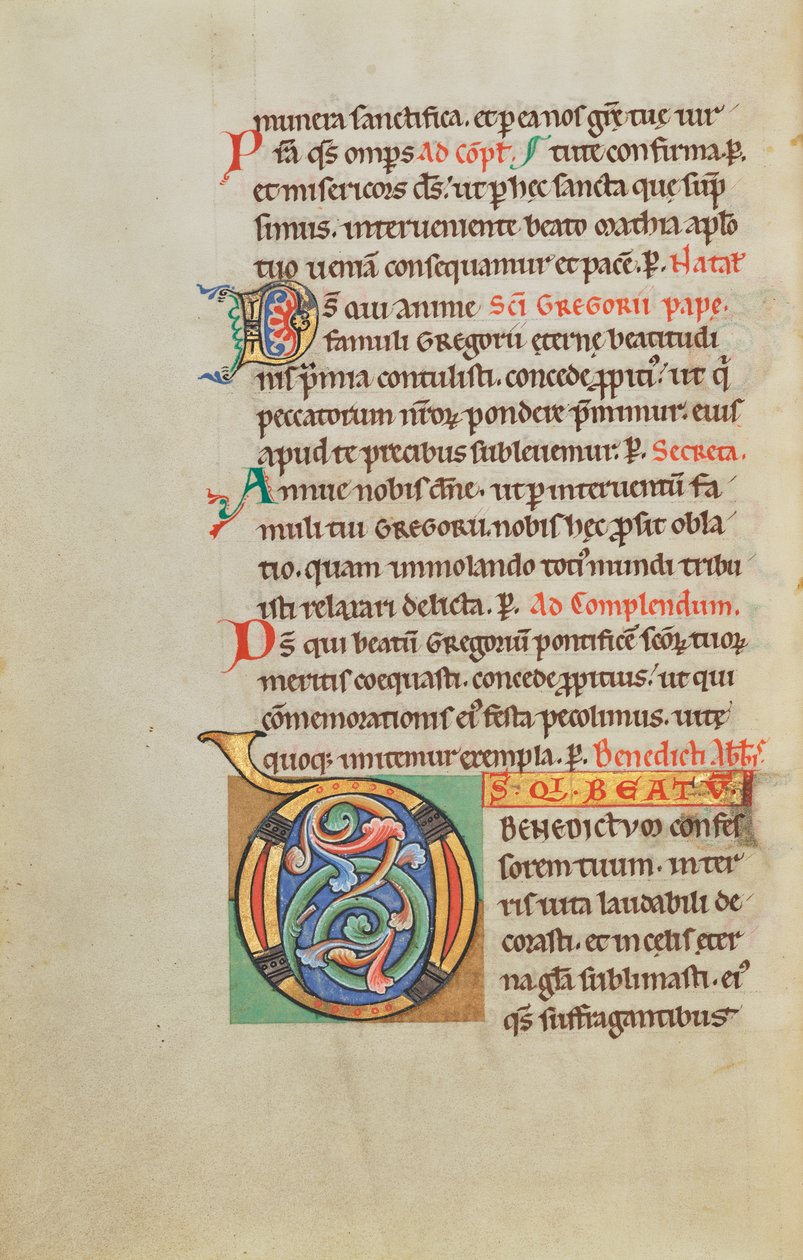 munera sanctifica. et p̄ ea nos grē tuę uir
P sta q̄s omp̄s Ad cōpl̄. tute confirma. p̄.
et misericors d̄s. ut p̄ hęc sancta quę sūp
simus. interueniente beato mathia aplo
tuo ueniā consequamur et pacē. p̄. Natał
D s̄ qui anime Sc̄i GREGORII papę.
famuli GREGORII ęternę beatitudi
nis p̄mia contulisti. concede ꝓpitiꝰ. ut q̄
peccatorum nr̄oꝝ pondere p̄mimur. eius
apud te precibus subleuemur. p̄. Secreta.
Annue nobis dn̄e. ut p̄ interuentū fa
muli tui GREGORII. nobis hęc ꝓsit obla
tio. quam immolando totiꝰ mundi tribu
isti relaxari delicta. p̄. Ad Complendum.
Ds̄ qui beatū GREGORIŪ pontificē sc̄oꝝ tuoꝝ
meritis coequasti. concede ꝓpitius. ut qui
cōmemorationis eiꝰ festa pecolimus. uitę
quoq; imitemur exempla. p̄. Benedicti Abb̄is.
O S̄. QI. BEATV̄.
BENEDICTVM confes
sorem tuum. in ter
ris uita laudabili de
corasti. et in cęlis ęter
na gła sublimasti. eiꝰ
q̄s suffragantibus